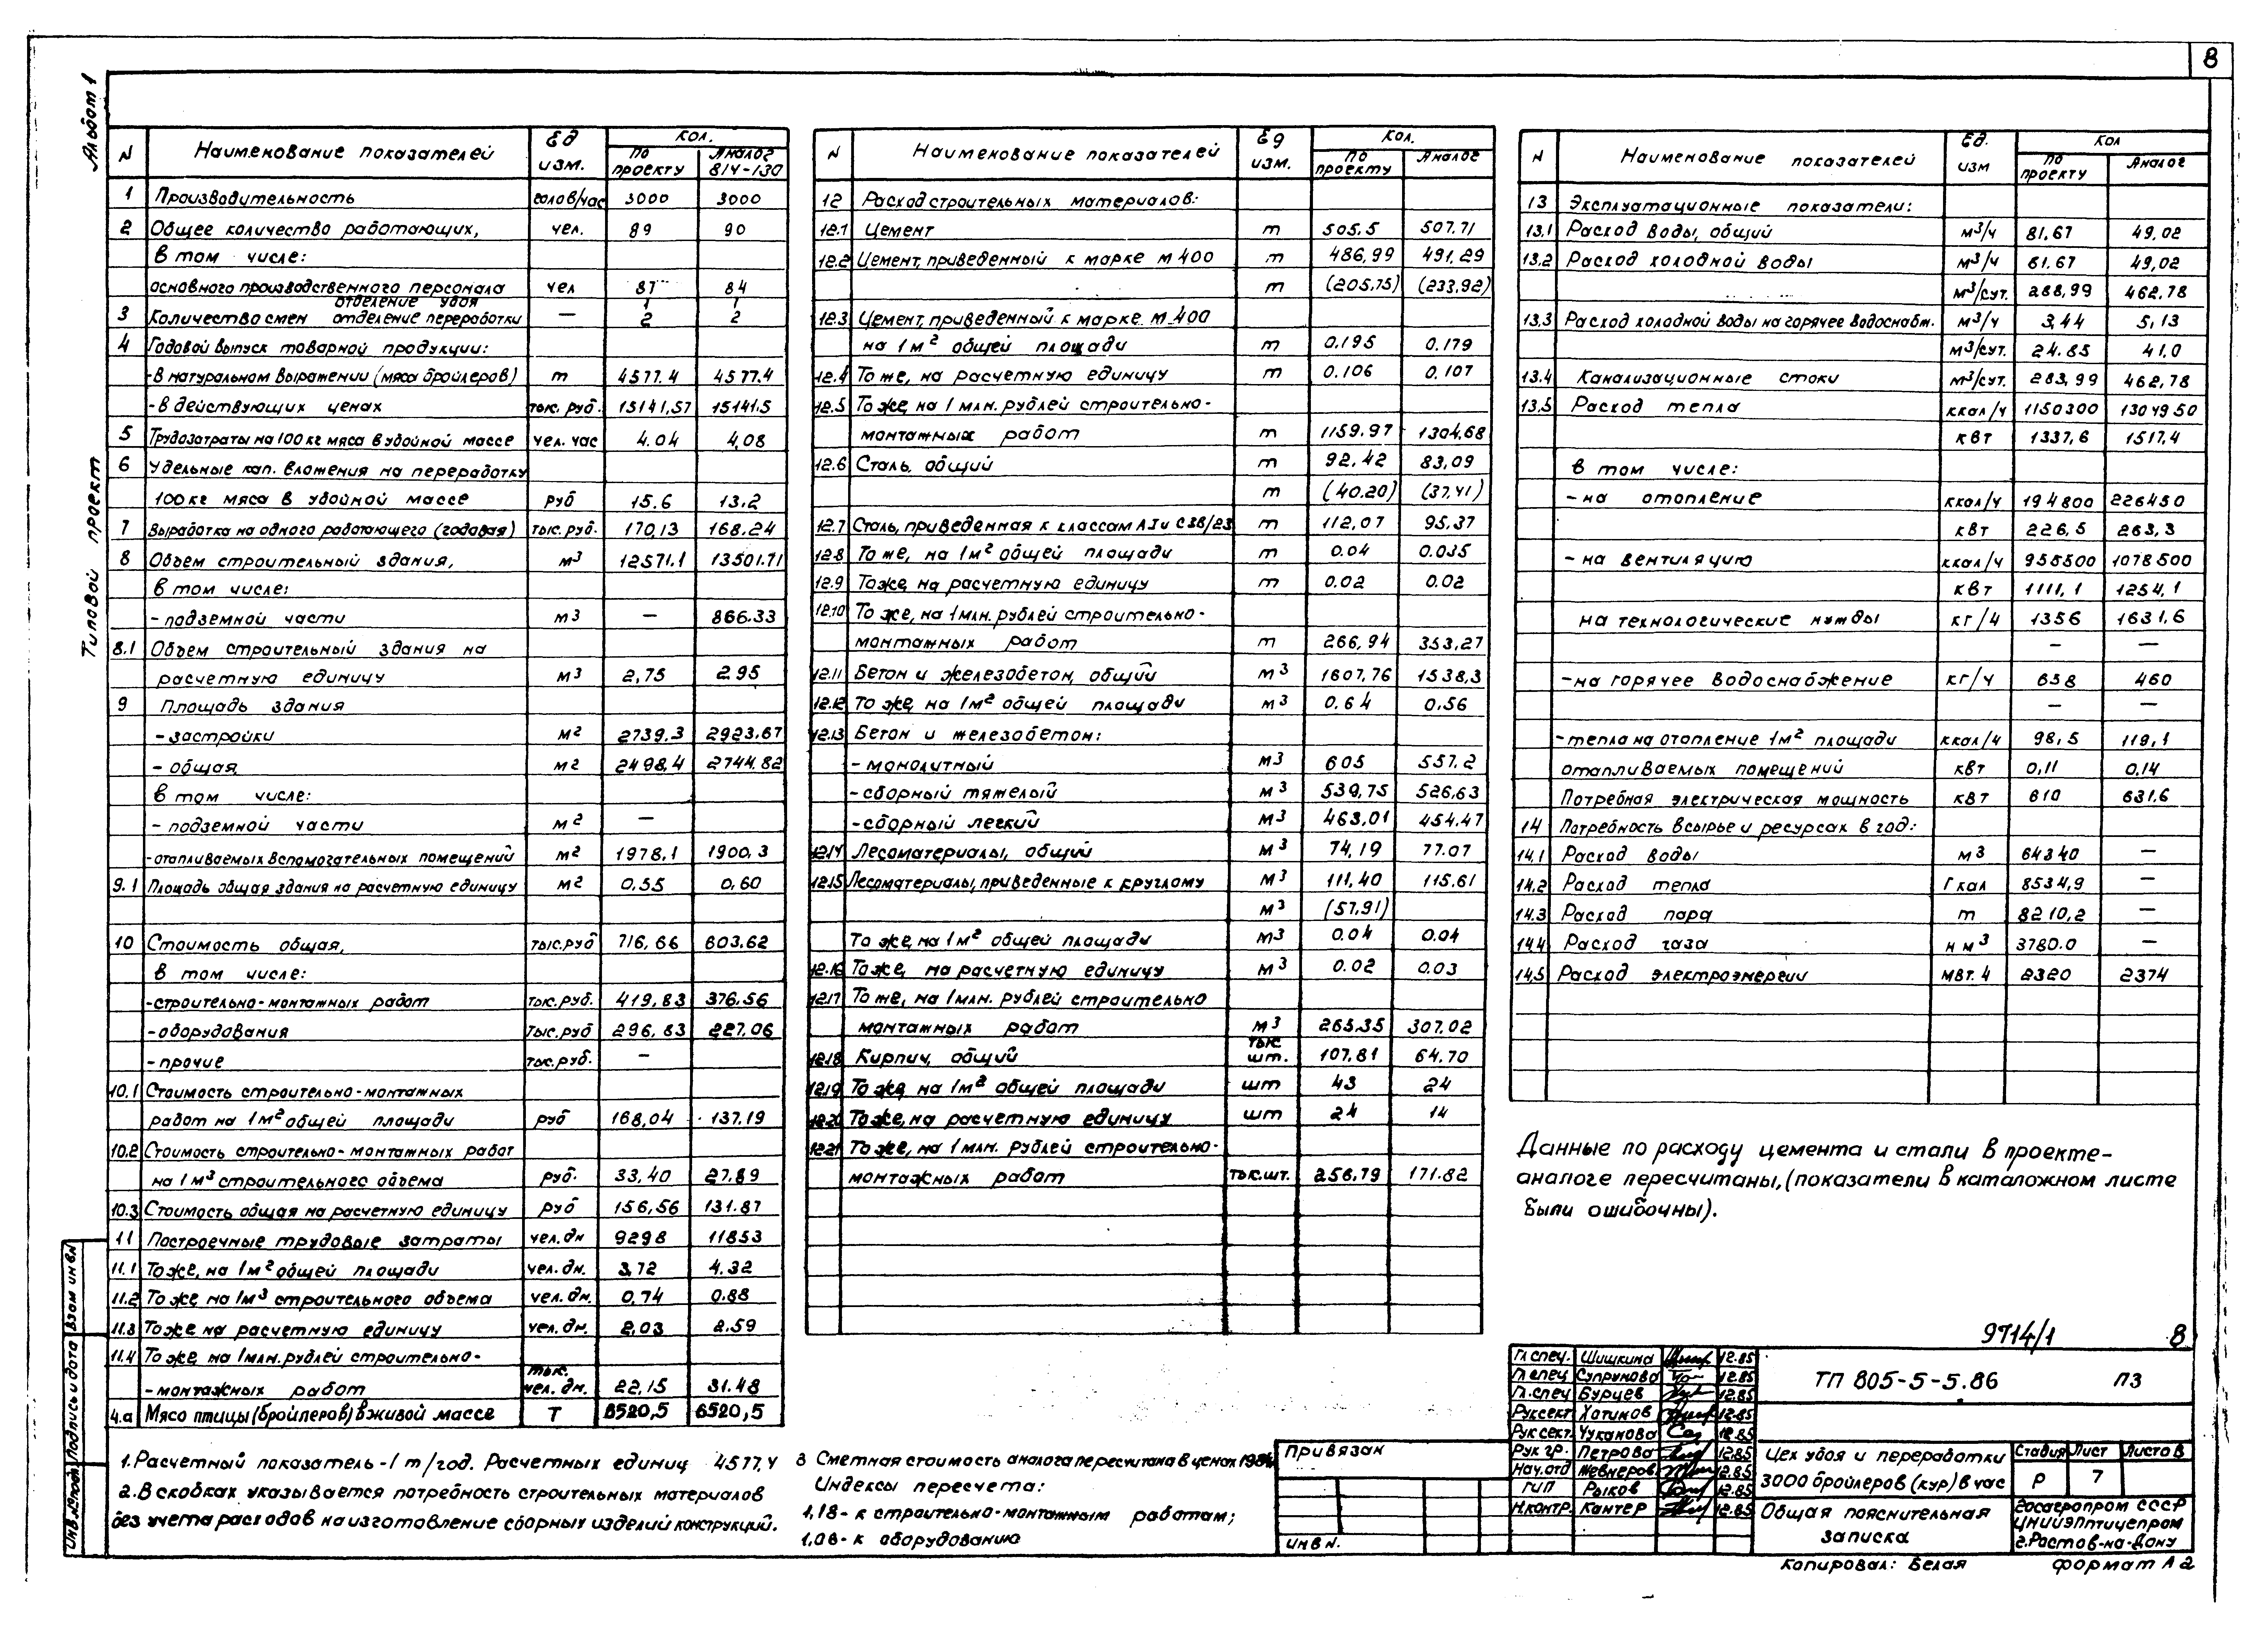 8
Альбом 1
Типовой проект
N Наименование показателей Ед изм. Кол. По проекту Аналог 814-130
1 Производительность голов/час 3000 3000
2 Общее количество работающих, чел. 89 90
в том числе:
основного производственного персонала чел 87 84
отделение убоя 1 1
3 Количество смен отделение переработки — 2 2
4 Годовой выпуск товарной продукции:
-в натуральном выражении (мяса бройлеров) т 4577.4 4577.4
-в действующих ценах тыс. руб. 15141,57 15141.5
5 Трудозатраты на 100 кг мяса в убойной массе чел. час 4.04 4,08
6 Удельные кап. вложения на переработку
100 кг мяса в убойной массе руб 15.6 13.2
7 Выработка на одного работающего (годовая) тыс. руб. 170,13 168.24
8 Объем строительный здания, м3 12571.1 13501.71
в том числе:
- подземной части м3 — 866.33
8.1 Объем строительный здания на
расчетную единицу м3 2,75 2.95
9 Площадь здания
-застройки м2 2739.3 2923.67
- общая м2 2498,4 2744.82
в том числе:
- подземной части м2 —
-отапливаемых вспомогательных помещений м2 1978,1 1900,3
9.1 Площадь общая здания на расчетную единицу м2 0,55 0,60
10 Стоимость общая, тыс.руб 716,66 603.62
в том числе:
-строительно-монтажных работ тыс.руб. 419,83 376,56
-оборудования тыс.руб 296,83 227.06
-прочие тыс.руб. —
10.1 Стоимость строительно-монтажных
работ на 1м2 общей площади руб 168,04 137.19
10.2 Стоимость строительно-монтажных работ
на 1м3 строительного объема руб. 33,40 27.89
10.3 Стоимость общая на расчетную единицу руб 156,56 131.87
11 Построечные трудовые затраты чел.дн 9298 11853
11.1 То же, на 1м2 общей площади чел.дн. 3,72 4.32
11.2 То же на 1м3 строительного объема чел.дн. 0,74 0.88
11.3 То же на расчетную единицу чел.дн. 2,03 2.59
11.4 То же на 1млн.рублей строительно-
-монтажных работ тыс. чел.дн. 22,15 31.48
4.а Мясо птицы (бройлеров) в живой массе Т 6520,5 6520,5
N Наименование показателей Ед изм. Кол. По проекту Аналог
12 Расход строительных материалов:
12.1 Цемент т 505.5 507.71
12.2 Цемент, приведенный к марке М400 т 486,99 491.29
т (205,75) (233,92)
12.3 Цемент, приведенный к марке М 400
на 1м2 общей площади т 0.195 0.179
12.4 То же, на расчетную единицу т 0.106 0.107
12.5 То же на 1 млн. рублей строительно-
монтажных работ т 1159.97 1304.68
12.6 Сталь, общий т 92.42 83,09
т (40.20) (37.41)
12.7 Сталь, приведенная к классам АI и С38/23 т 112,07 95.37
12.8 То же, на 1м2 общей площади т 0.04 0.035
12.9 То же, на расчетную единицу т 0.02 0.02
12.10 То же, на 1млн. рублей строительно-
монтажных работ т 266,94 353,27
12.11 Бетон и железобетон, общий м3 1607,76 1538,3
12.12 То же, на 1м2 общей площади м3 0.64 0.56
12.13 Бетон и железобетон:
- монолитный м3 605 557.2
-сборный тяжелый м3 539,75 526,63
-сборный легкий м3 463,01 454.47
12.14 Лесоматериалы, общий м3 74,19 77.07
12.15 Лесоматериалы, приведенные к круглому м3 111,40 115.61
м3 (57,91)
То же, на 1м2 общей площади м3 0.04 0.04
12.16 То же, на расчетную единицу м3 0.02 0.03
12.17 То же, на 1млн. рублей строительно
монтажных работ м3 265.35 307.02
12.18 Кирпич, общий тыс шт. 107,81 64.70
12.19 То же на 1м2 общей площади шт 43 24
12.20 То же, на расчетную единицу шт 24 14
12.21 То же, на 1 млн. рублей строительно-
монтажных работ тыс.шт. 256.79 171.82
N Наименование показателей Ед. изм Кол По проекту Аналог
13 Эксплуатационные показатели:
13.1 Расход воды, общий м3/ч 81.67 49.02
13.2 Расход холодной воды м3/ч 81.67 49,02
м3/сут. 288,99 462.78
13.3 Расход холодной воды на горячее водоснабж. м3/ч 3,44 5,13
м3/сут. 24.85 41.0
13.4 Канализационные стоки м3/сут. 283,99 462,78
13.5 Расход тепла ккал/ч 1150300 1304950
квт 1337,6 1517.4
в том числе:
-на отопление ккал/ч 194800 226450
квт 226,5 263,3
-на вентиляцию ккал/ч 955500 1078500
квт 1111,1 1254,1
на технологические нужды кг/ч 1356 1631.6
— —
-на горячее водоснабжение кг/ч 658 460
— —
-тепла на отопление 1м2 площади ккал/ч 98,5 119,1
отапливаемых помещений квт 0,11 0,14
Потребная электрическая мощность квт 610 631.6
14 Потребность в сырье и ресурсах в год:
14.1 Расход воды м3 64340 —
14.2 Расход тепла Гкал 8534,9 —
14.3 Расход пара т 8210,2 —
14.4 Расход газа н м3 3780.0 —
14.5 Расход электроэнергии мвт. ч 2320 2374
Данные по расходу цемента и стали в проекте-
аналоге пересчитаны, (показатели в каталожном листе
были ошибочны).
1. Расчетный показатель-1 т/год. Расчетных единиц 4577,4
2. В скобках указывается потребность строительных материалов
без учета расходов на изготовление сборных изделий конструкций.
3 Сметная стоимость аналога пересчитана в ценах 1984г
Индексы пересчета:
1,18- к строительно-монтажным работам;
1,06- к оборудованию
Привязан
Инв N.
9714/1 8
Гл.спец. Шишкина 12.85
Гл.спец Супрунова 12.85
Гл.спец Бурцев 12.85
Рук.сект Хотинов 12.85
Рук.сект. Чуканова 12.85
Рук гр. Петрова 12.85
Нач.отд Жевнеров 12.85
ГИП Рыков 12.85
Н.контр. Кантер 12.85
ТП 805-5-5.86 ПЗ
Цех убоя и переработки
3000 бройлеров (кур) в час
Стадия Лист Листов
Р 7
Общая пояснительная
записка
Госагропром СССР
ЦНИИЭПптицепром
г.Ростов-на-Дону
Копировал: Белая формат А2
Инв.№ подл Подпись и дата Взам инв.N